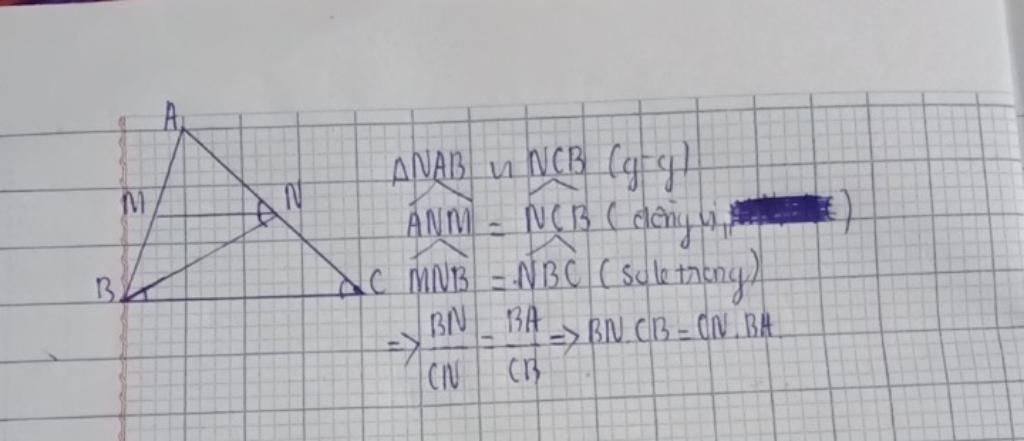 A
M
N
B
C
ΔNAB ∽ NCB (g-g)
ANM = NCB (đồng vị,)
MNB = NBC (sole trong)
=> BN/CN = BA/CB => BN.CB = CN.BA